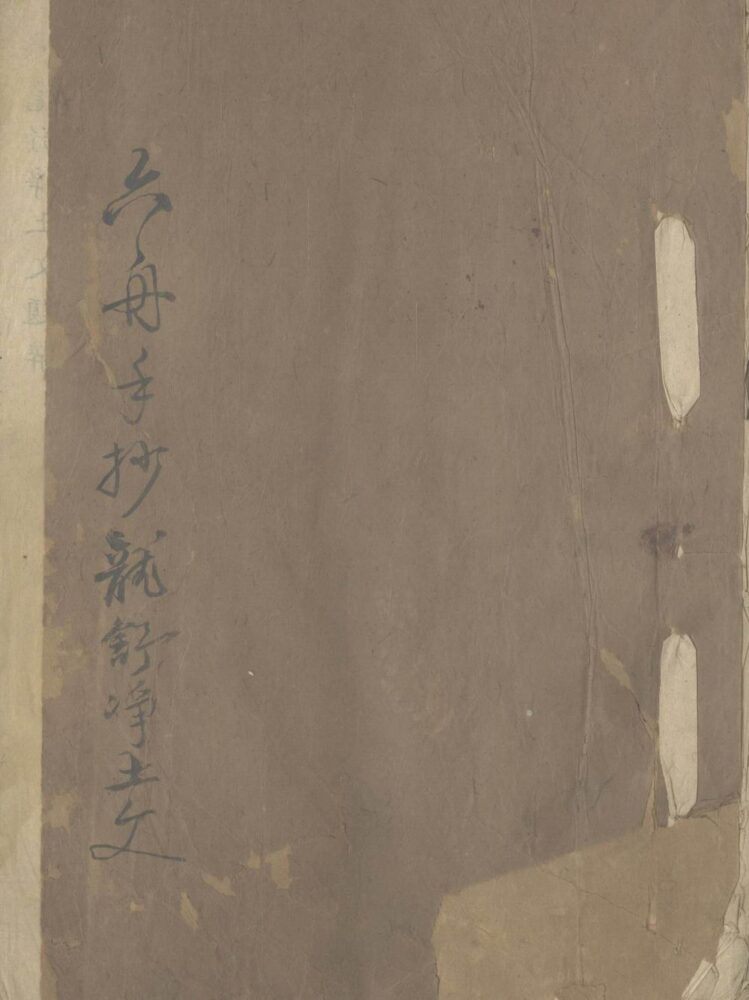 六舟手抄龍舒淨土文